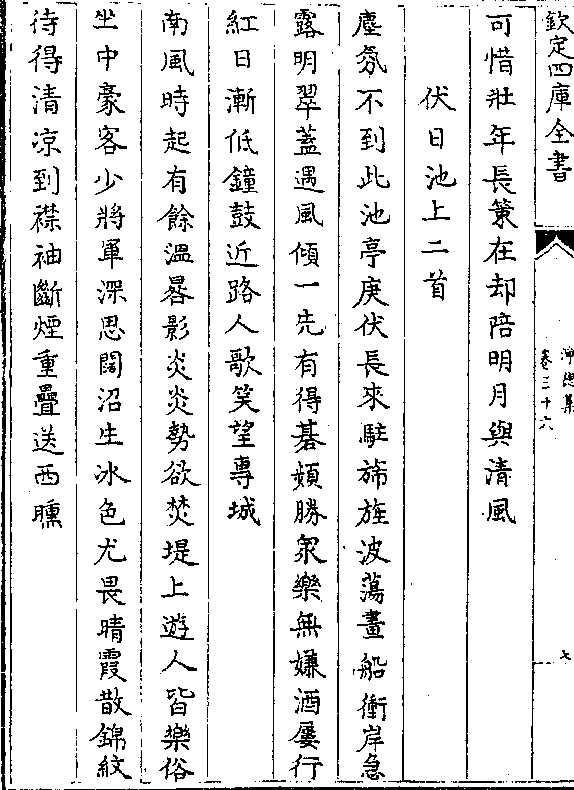 欽定四庫全書
卷三十六
七
可惜壯年長策在却陪明月與清風
伏日池上二首
塵氛不到此池亭庚伏長來駐斾旌波蕩畫船衝岸急
露明翠蓋遇風傾一先有得碁頻勝衆樂無嫌酒屢行
紅日漸低鐘鼓近路人歌笑望專城
南風時起有餘溫晷影炎炎勢欲焚堤上遊人皆樂俗
坐中豪客少將軍深思闊沼生冰色尤畏晴霞散錦紋
待得清凉到襟袖斷煙重疊送西曛